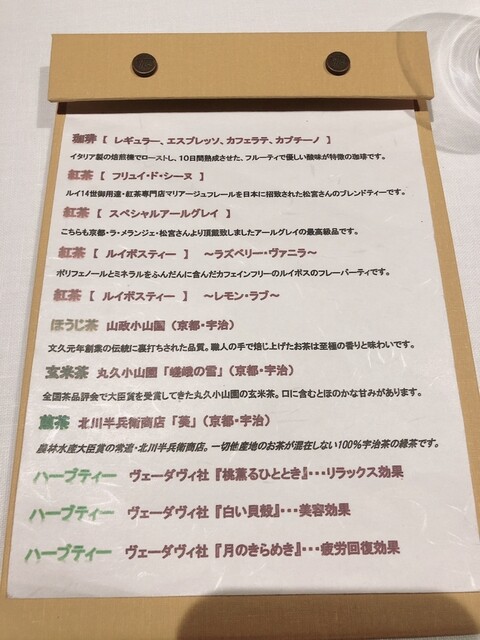 珈琲 【 レギュラー、エスプレッソ、カフェラテ、カプチーノ 】
イタリア製の焙煎機でローストし、10日間熟成させた、フルーティで優しい酸味が特徴の珈琲です。
紅茶 【 フリュイ・ド・シーヌ 】
ルイ14世御用達・紅茶専門店マリアージュフレールを日本に招致された松宮さんのブレンドティーです。
紅茶 【 スペシャルアールグレイ 】
こちらも京都・ラ・メランジェ・松宮さんより頂戴致しましたアールグレイの最高級品です。
紅茶 【 ルイボスティー 】 ～ラズベリー・ヴァニラ～
ポリフェノールとミネラルをふんだんに含んだカフェインフリーのルイボスのフレーバーティです。
紅茶 【 ルイボスティー 】 ～レモン・ラブ～
ほうじ茶 山政小山園（京都・宇治）
文久元年創業の伝統に裏打ちされた品質。職人の手で焙じ上げたお茶は至極の香りと味わいです。
玄米茶 丸久小山園「嵯峨の雪」（京都・宇治）
全国茶品評会で大臣賞を受賞してきた丸久小山園の玄米茶。口に含むとほのかな甘みがあります。
煎茶 北川半兵衛商店「葵」（京都・宇治）
農林水産大臣賞の常連・北川半兵衛商店。一切他産地のお茶が混在しない100％宇治茶の緑茶です。
ハーブティー ヴェーダヴィ社『桃薫るひととき』・・・リラックス効果
ハーブティー ヴェーダヴィ社『白い貝殻』・・・美容効果
ハーブティー ヴェーダヴィ社『月のきらめき』・・・疲労回復効果